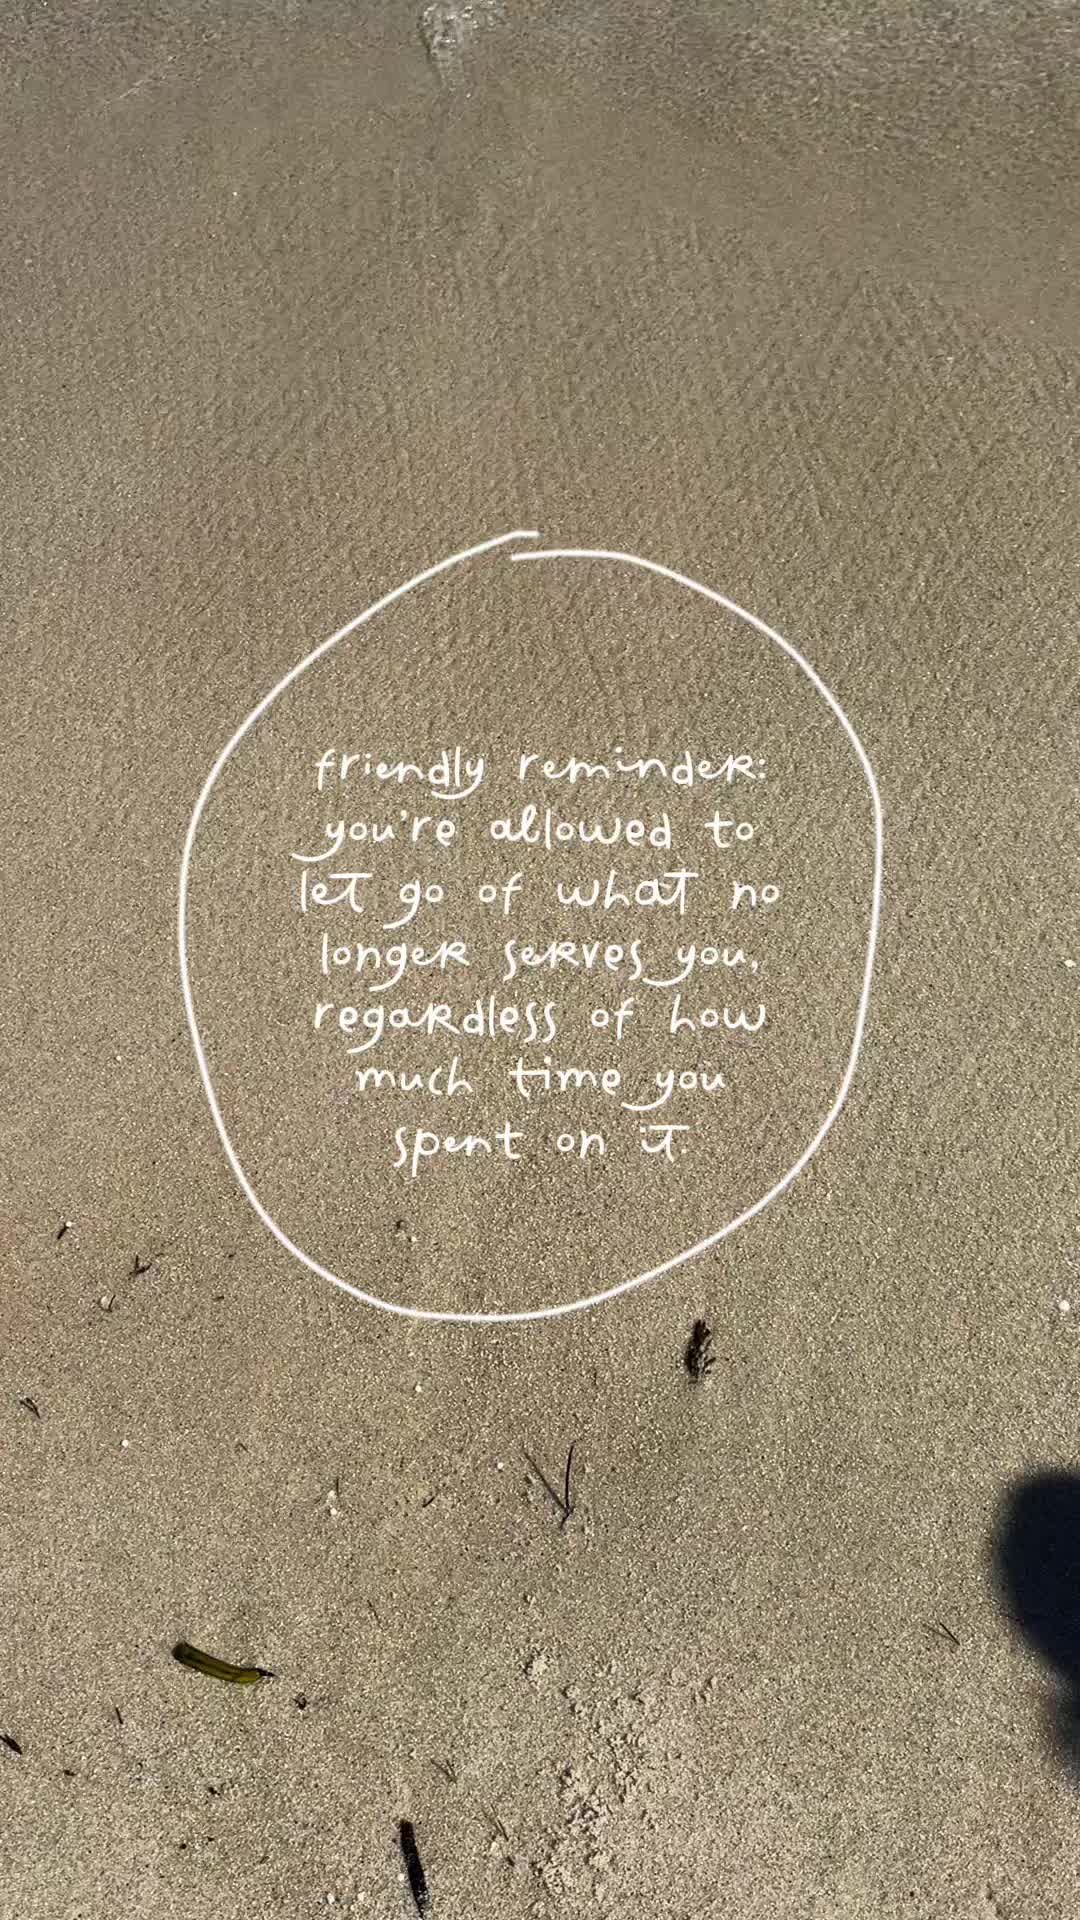 friendly reminder:
you're allowed to
let go of what no
longer serves you,
regardless of how
much time you
spent on it.